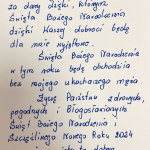 za dany dzięki, którym
Święta Bożego Narodzenia
dzięki Waszej dobroci będą
dla mnie wyjątkowe.
Święta Bożego Narodzenia
w tym roku będę obchodziła
bez mojego ukochanego męża
Życzę Państwu zdrowych,
pogodnych i błogosławionych
Świąt Bożego Narodzenia i
Szczęśliwego Nowego Roku 2024